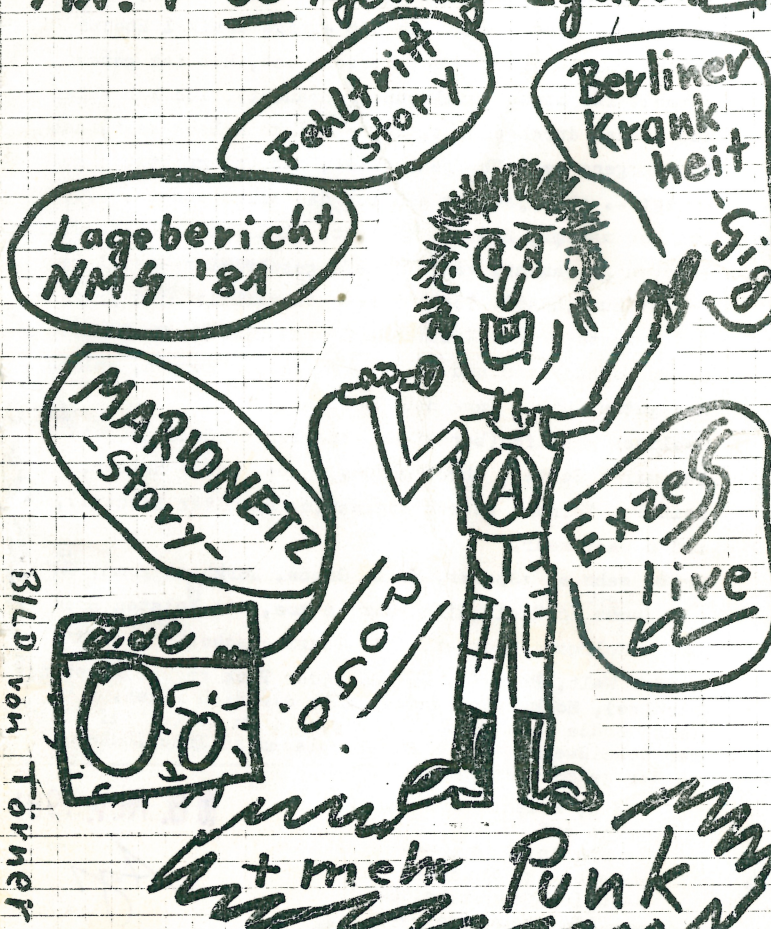 Fehltritt
Story
Berliner
Krank
heit
-Gig
Lagebericht
NMS '81
MARIONETZ
-Story-
A
Exzess
live
POGO
BILD von Törner
+ mehr Punk